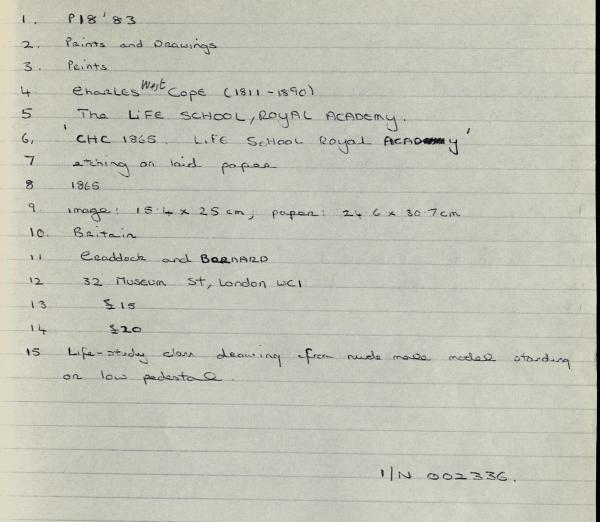 1. P18'83
2. Prints and Drawings
3. Prints
4 Charles West Cope (1811-1890)
5 The LIFE SCHOOL, ROYAL ACADEMY.
6, 'CHC 1865. LIFE School Royal ACADEMY'
7 etching on laid paper
8 1865
9 image: 15.4 x 25 cm; paper: 24.6 x 30.7cm
10. Britain
11 Craddock and BARNARD
12 32 Museum St, London WC1
13 £15
14 £20
15 Life-study class drawing from nude male model standing
on low pedestal.
I/N 002336.